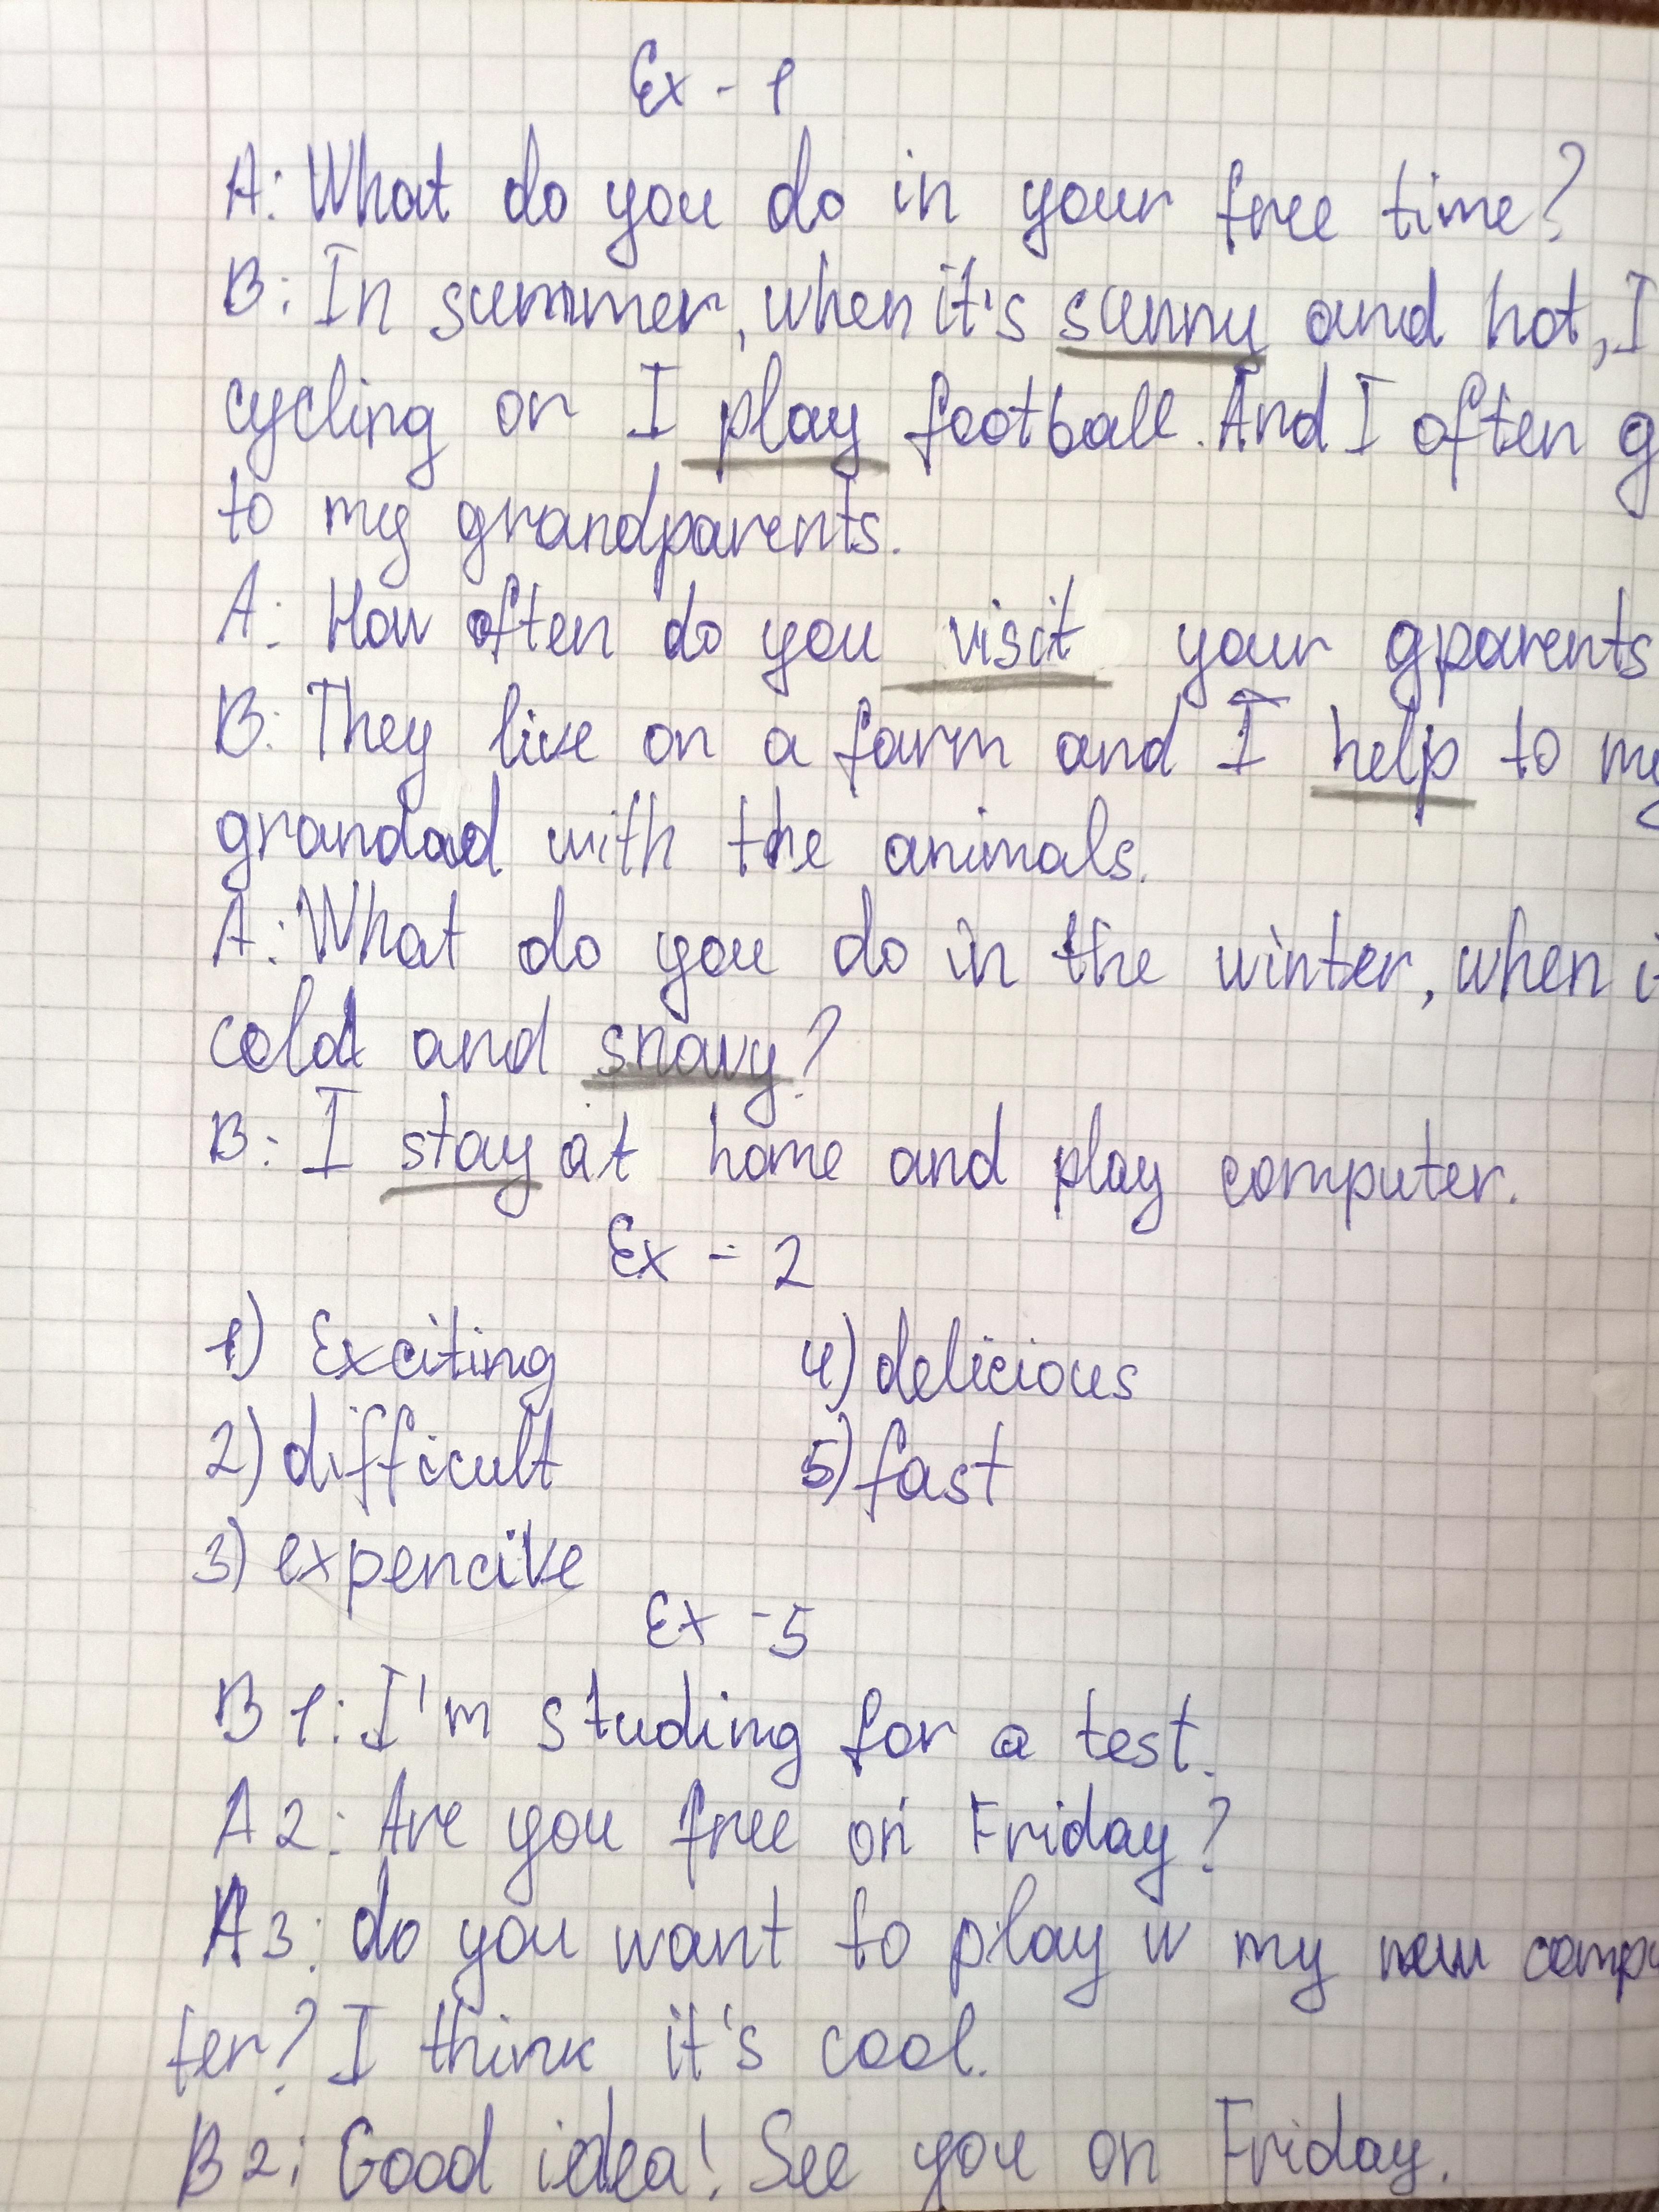 Ex - 1
A: What do you do in your free time?
B: In summer, when it's sunny and hot, I
cycling or I play football. And I often g
to my grandparents.
A: How often do you visit your gparents
B: They live on a farm and I help to my
grandad with the animals.
A: What do you do in the winter, when i
cold and snowy?
B: I stay at home and play computer.
Ex - 2
1) Exciting 4) delicious
2) difficult 5) fast
3) expencive
Ex - 5
B1: I'm studing for a test.
A2: Are you free on Friday?
A3: do you want to play w my new compu
ter? I think it's cool.
B2: Good idea! See you on Friday.